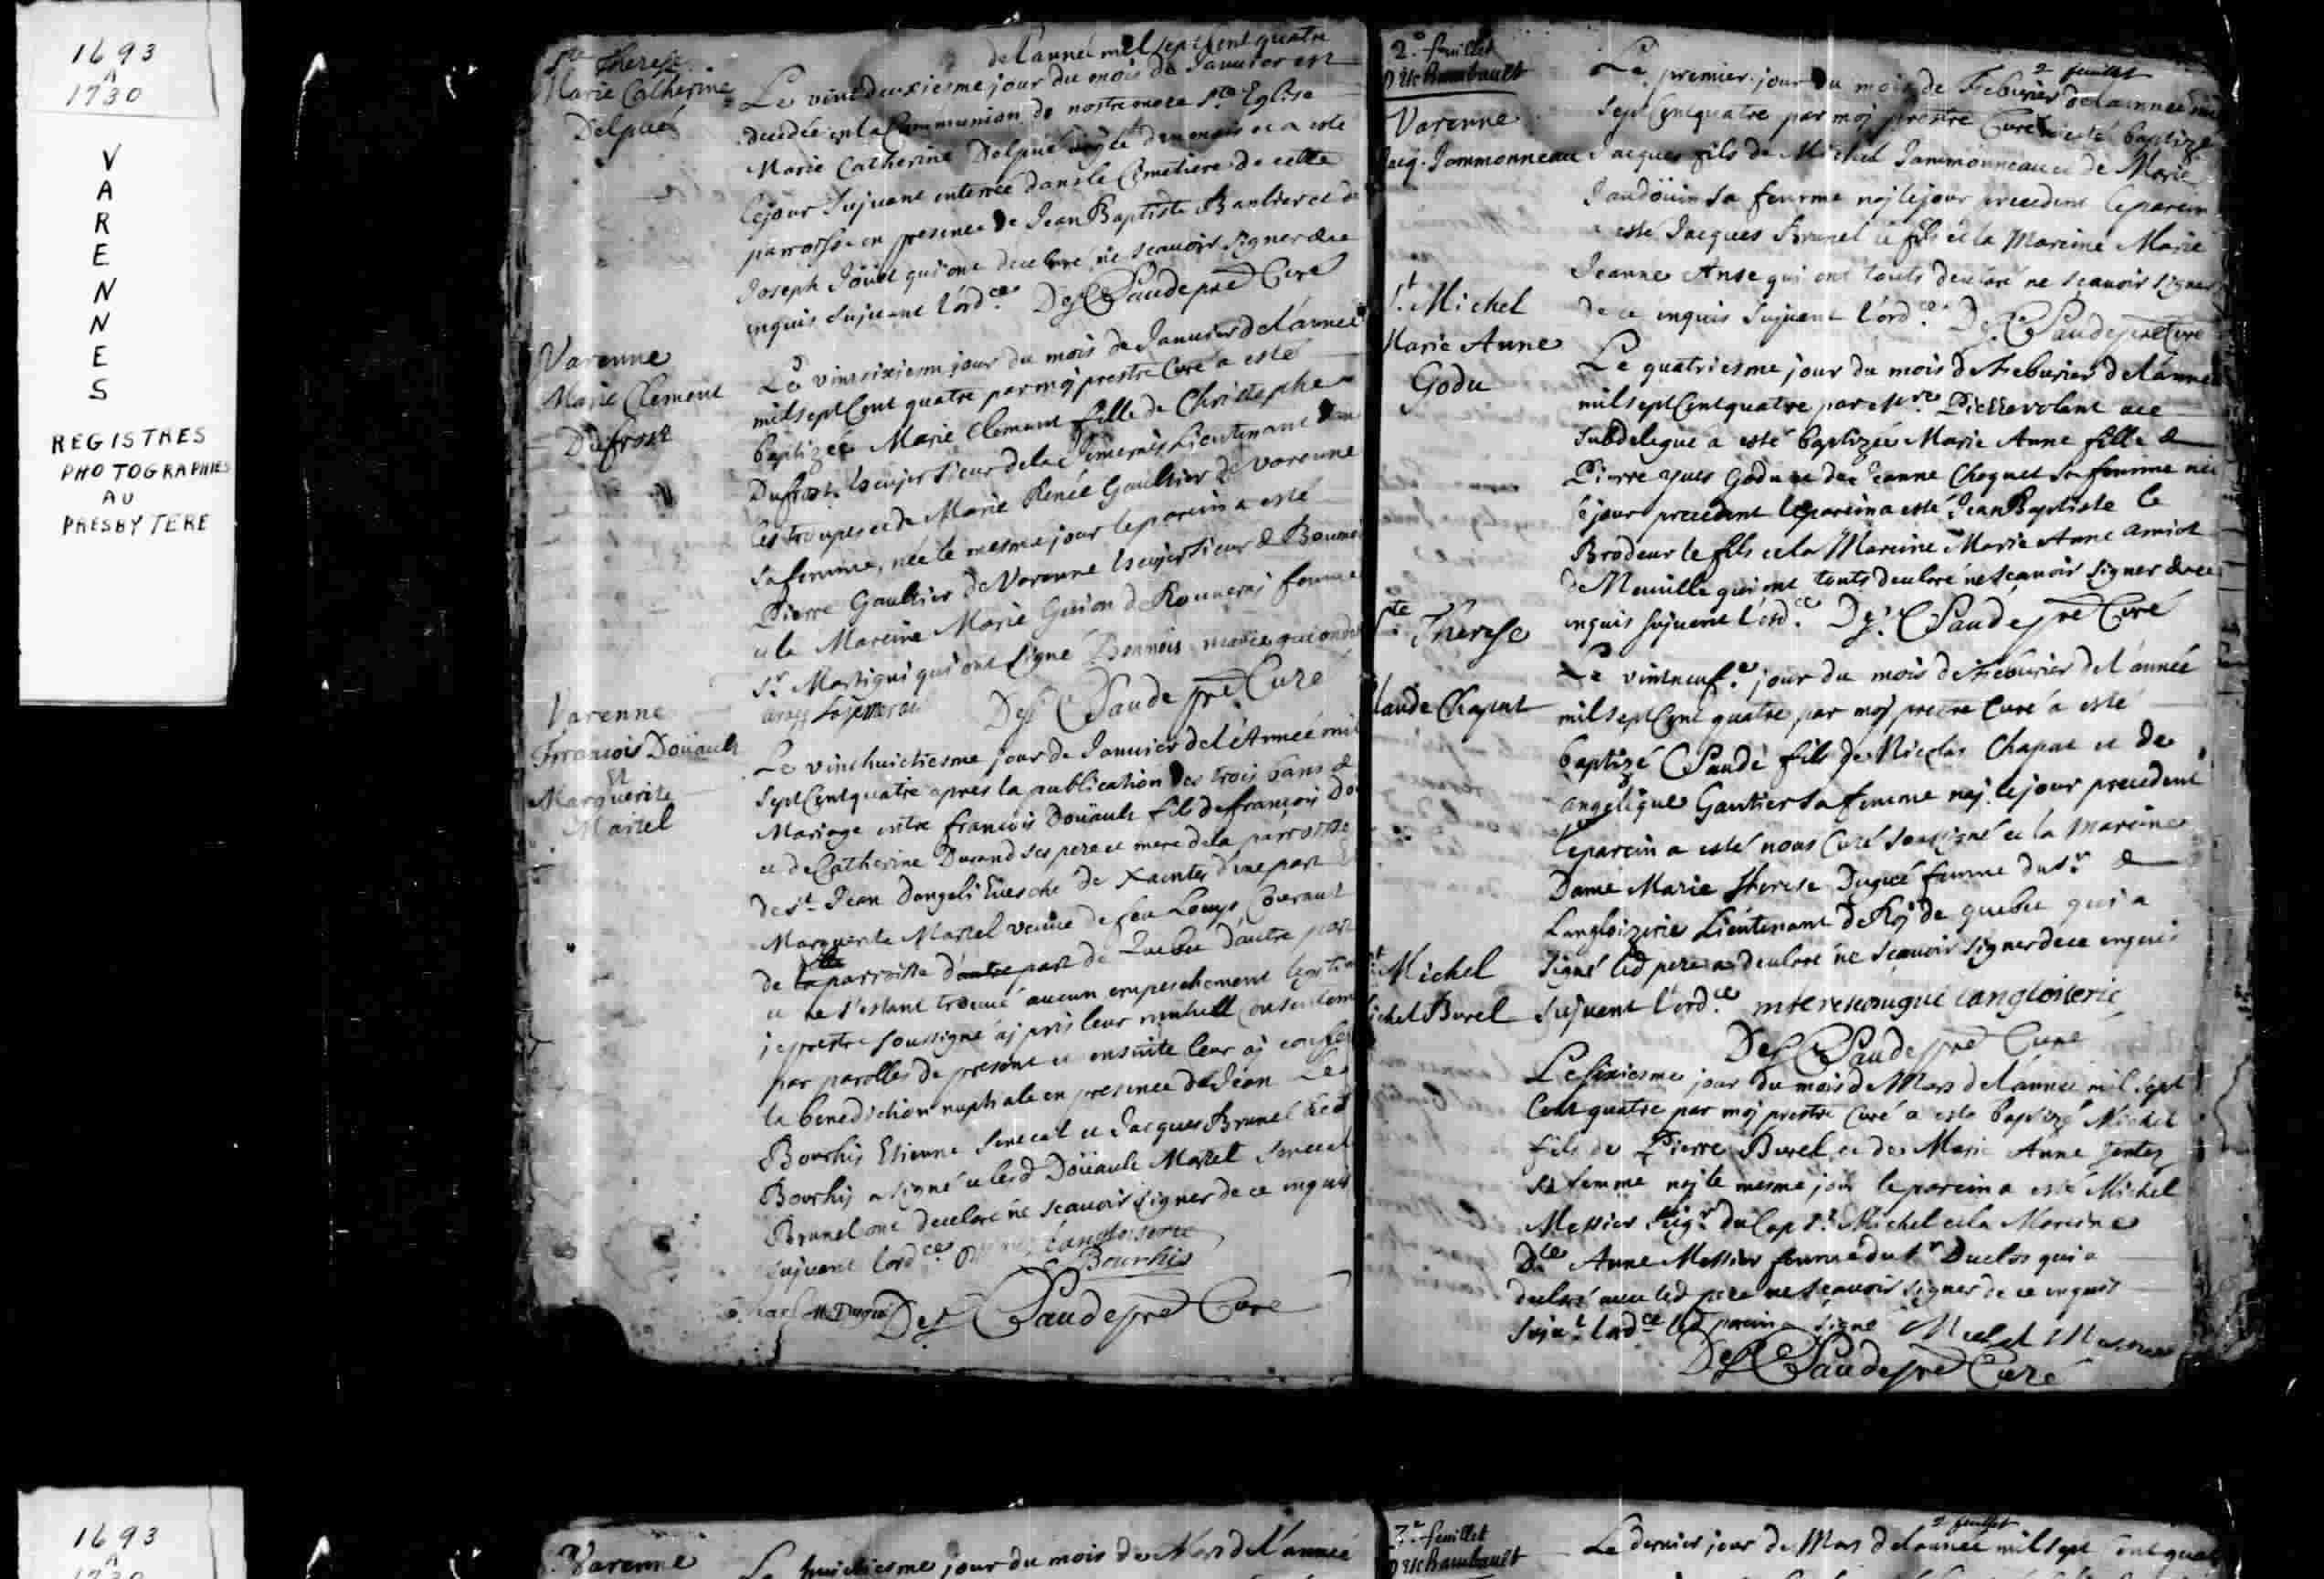 1693
A
1730
VARENNES
REGISTRES
PHOTOGRAPHIES
AU
PRESBYTERE
Ste Therese
Marie Catherine
Delpué
de l'année mil sept Cent quatre
Le vintdeuxiesme jour du mois de Januier est
decedée en la Communion de nostre mere Ste Eglise
Marie Catherine Delpué mois et a esté
le jour sujuant enterrée dans le Cimetiere de cette
parroisse en presence de Jean Baptiste et de
Joseph qui ont declaré ne scauoir signer de ce
inquis sujuant l'ordce. Des Claudepré Curé
Varenne
Marie Clement
Dufrost
Le vintsixiesm jour du mois de Januier de l'année
mil sept Cent quatre par moj prestre Curé a esté
baptizée Marie Clement fille de Christophe
Dufrost Escujer sieur de la Jemerais Lieutenant dans
les troupes et de Marie Renée Gaultier de Varenne
sa femme, née le mesme jour le parein a esté
Pierre Gaultier de Varenne Escujer sieur de Boumoi
et la Mareine Marie Guion de Rouuraj femme
Sr. Martigni qui ont signé
Des Claude pré Curé
Varenne
François Doüault
et
Marguerite
Martel
Le vinthuictiesme jour de Januier de l'Année mil
sept Cent quatre apres la publication des trois bans de
Mariage entre françois Doüault fils de françois Do
et de Catherine Durand ses pere et mere de la parroisse
de St. Jean Dangeli Euesché de Xaintes d'une part Et
Marguerite Martel veuue de feu Louys Couraut
de la parroisse d'autre part de Quebec d'autre part
et ne s'estant trouué aucun empeschement legitim
je prestre soussigné aj pris leur mutuell consentem
par parolles de present et ensuite leur aj confer
la benediction nuptiale en presence de Jean Le
Bourhis Etienne Senecal et Jacques Brunel led
Bourhis a signé et lesd Doüault Martel Senecal
Brunel ont declaré ne scauoir signer de ce inquis
sujuant l'ordce Langloiserie
Bourhis
M Dugué Des Claudepré Curé
2e. feuillet
DesChambault
Varenne
Jacq. Jammonneau
2 feuillet
Le premier jour du mois de Feburier de l'annee mil
sept Cent quatre par moj prestre Curé a esté baptizé
Jacques fils de Michel Jammonneau et de Marie
Jaudoüin sa femme nej le jour precedent le parein
a esté Jacques Brunel le fils et la Mareine Marie
Jeanne Anse qui ont touts declaré ne scauoir signer
de ce inquis sujuant l'ordce. Des Claudepré Curé
St. Michel
Marie Anne
Godu
Le quatriesme jour du mois de Feburier de l'année
mil sept Cent quatre par Mre Pierre volant
subdelegué a esté baptizée Marie Anne fille de
Pierre yues Godu et de Jeanne Choquet sa femme née
le jour precedent le parein a esté Jean Baptiste le
Brodeur le fils et la Mareine Marie Anne Amiot
de Meuille qui ont touts declaré ne scauoir signer de ce
inquis sujuant l'ordce. Des. Claudepré Curé
Ste Therese
Claude Chaput
Le vintneufe. jour du mois de Feburier de l'année
mil sept Cent quatre par moj prestre Curé a esté
baptizé Claude fils de Nicolas Chaput et de
angelique Gautier sa femme nej. le jour precedent
le parein a esté nous Curé soussigné et la mareine
Dame Marie Therese Dugué femme du Sr. de
Langloizerie Lieutenant de Roj de quebec qui a
signé led pere a declaré ne scauoir signer de ce inquis
sujuant l'ordce mterese dugué langloiserie
Des Claudepré Curé
St Michel
Michel Burel
Le sixiesme jour du mois de Mars de l'année mil sept
Cent quatre par moj prestre Curé a esté baptizé Michel
fils de Pierre Burel et de Marie Anne Gentes
sa femme nej le mesme jour le parein a esté Michel
Messier Seigr du Cap St. Michel et la Mareine
Dlle Anne Messier femme du Sr Duclos qui a
declaré auec led pere ne scauoir signer de ce inquis
sujut l'ordce led parein a signé Michel Messier
Des Claudepré Curé
1693
A
1730
Varenne
Le huictiesme jour du mois de Mars de l'année
3e. feuillet
DesChambault
feuillet
Le dernier jour de Mars de l'année mil sept cent quatre